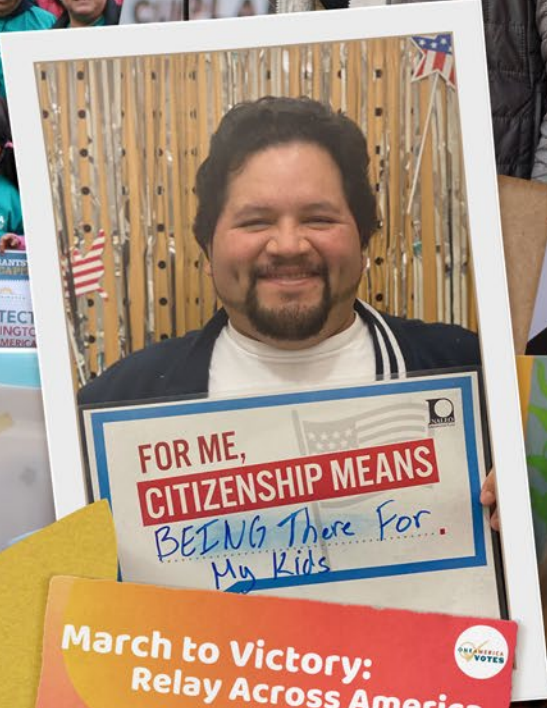 TECT
INGTO
MERICA
NALEO
FOR ME,
CITIZENSHIP MEANS
BEING There For.
My Kids
March to Victory:
Relay Across America
ONEAMERICA
VOTES